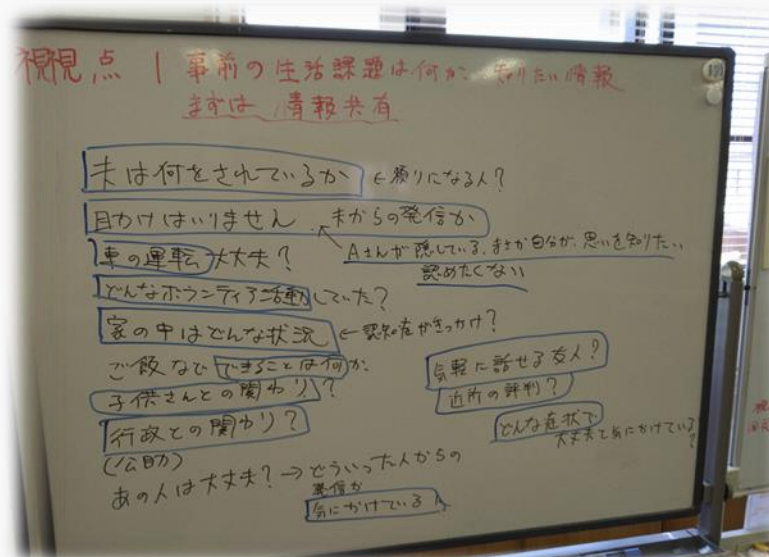 視点 1 事前の生活課題は何か、知りたい情報
まずは、情報共有
夫は何をされているか ← 頼りになる人?
目かけはいりません 夫からの発信か
Aさんが隠している、まさか自分が、思いを知りたい
認めたくない
車の運転大丈夫?
どんなボランティア活動していた?
家の中はどんな状況 ← 認知症がきっかけ?
ご飯などできることは何か、
子供さんとの関わり?
行政との関わり?
(公助)
あの人は大丈夫? → どういった人からの
発信か
気にかけている人
気軽に話せる友人?
近所の評判?
どんな症状で
大丈夫と気にかけている
?